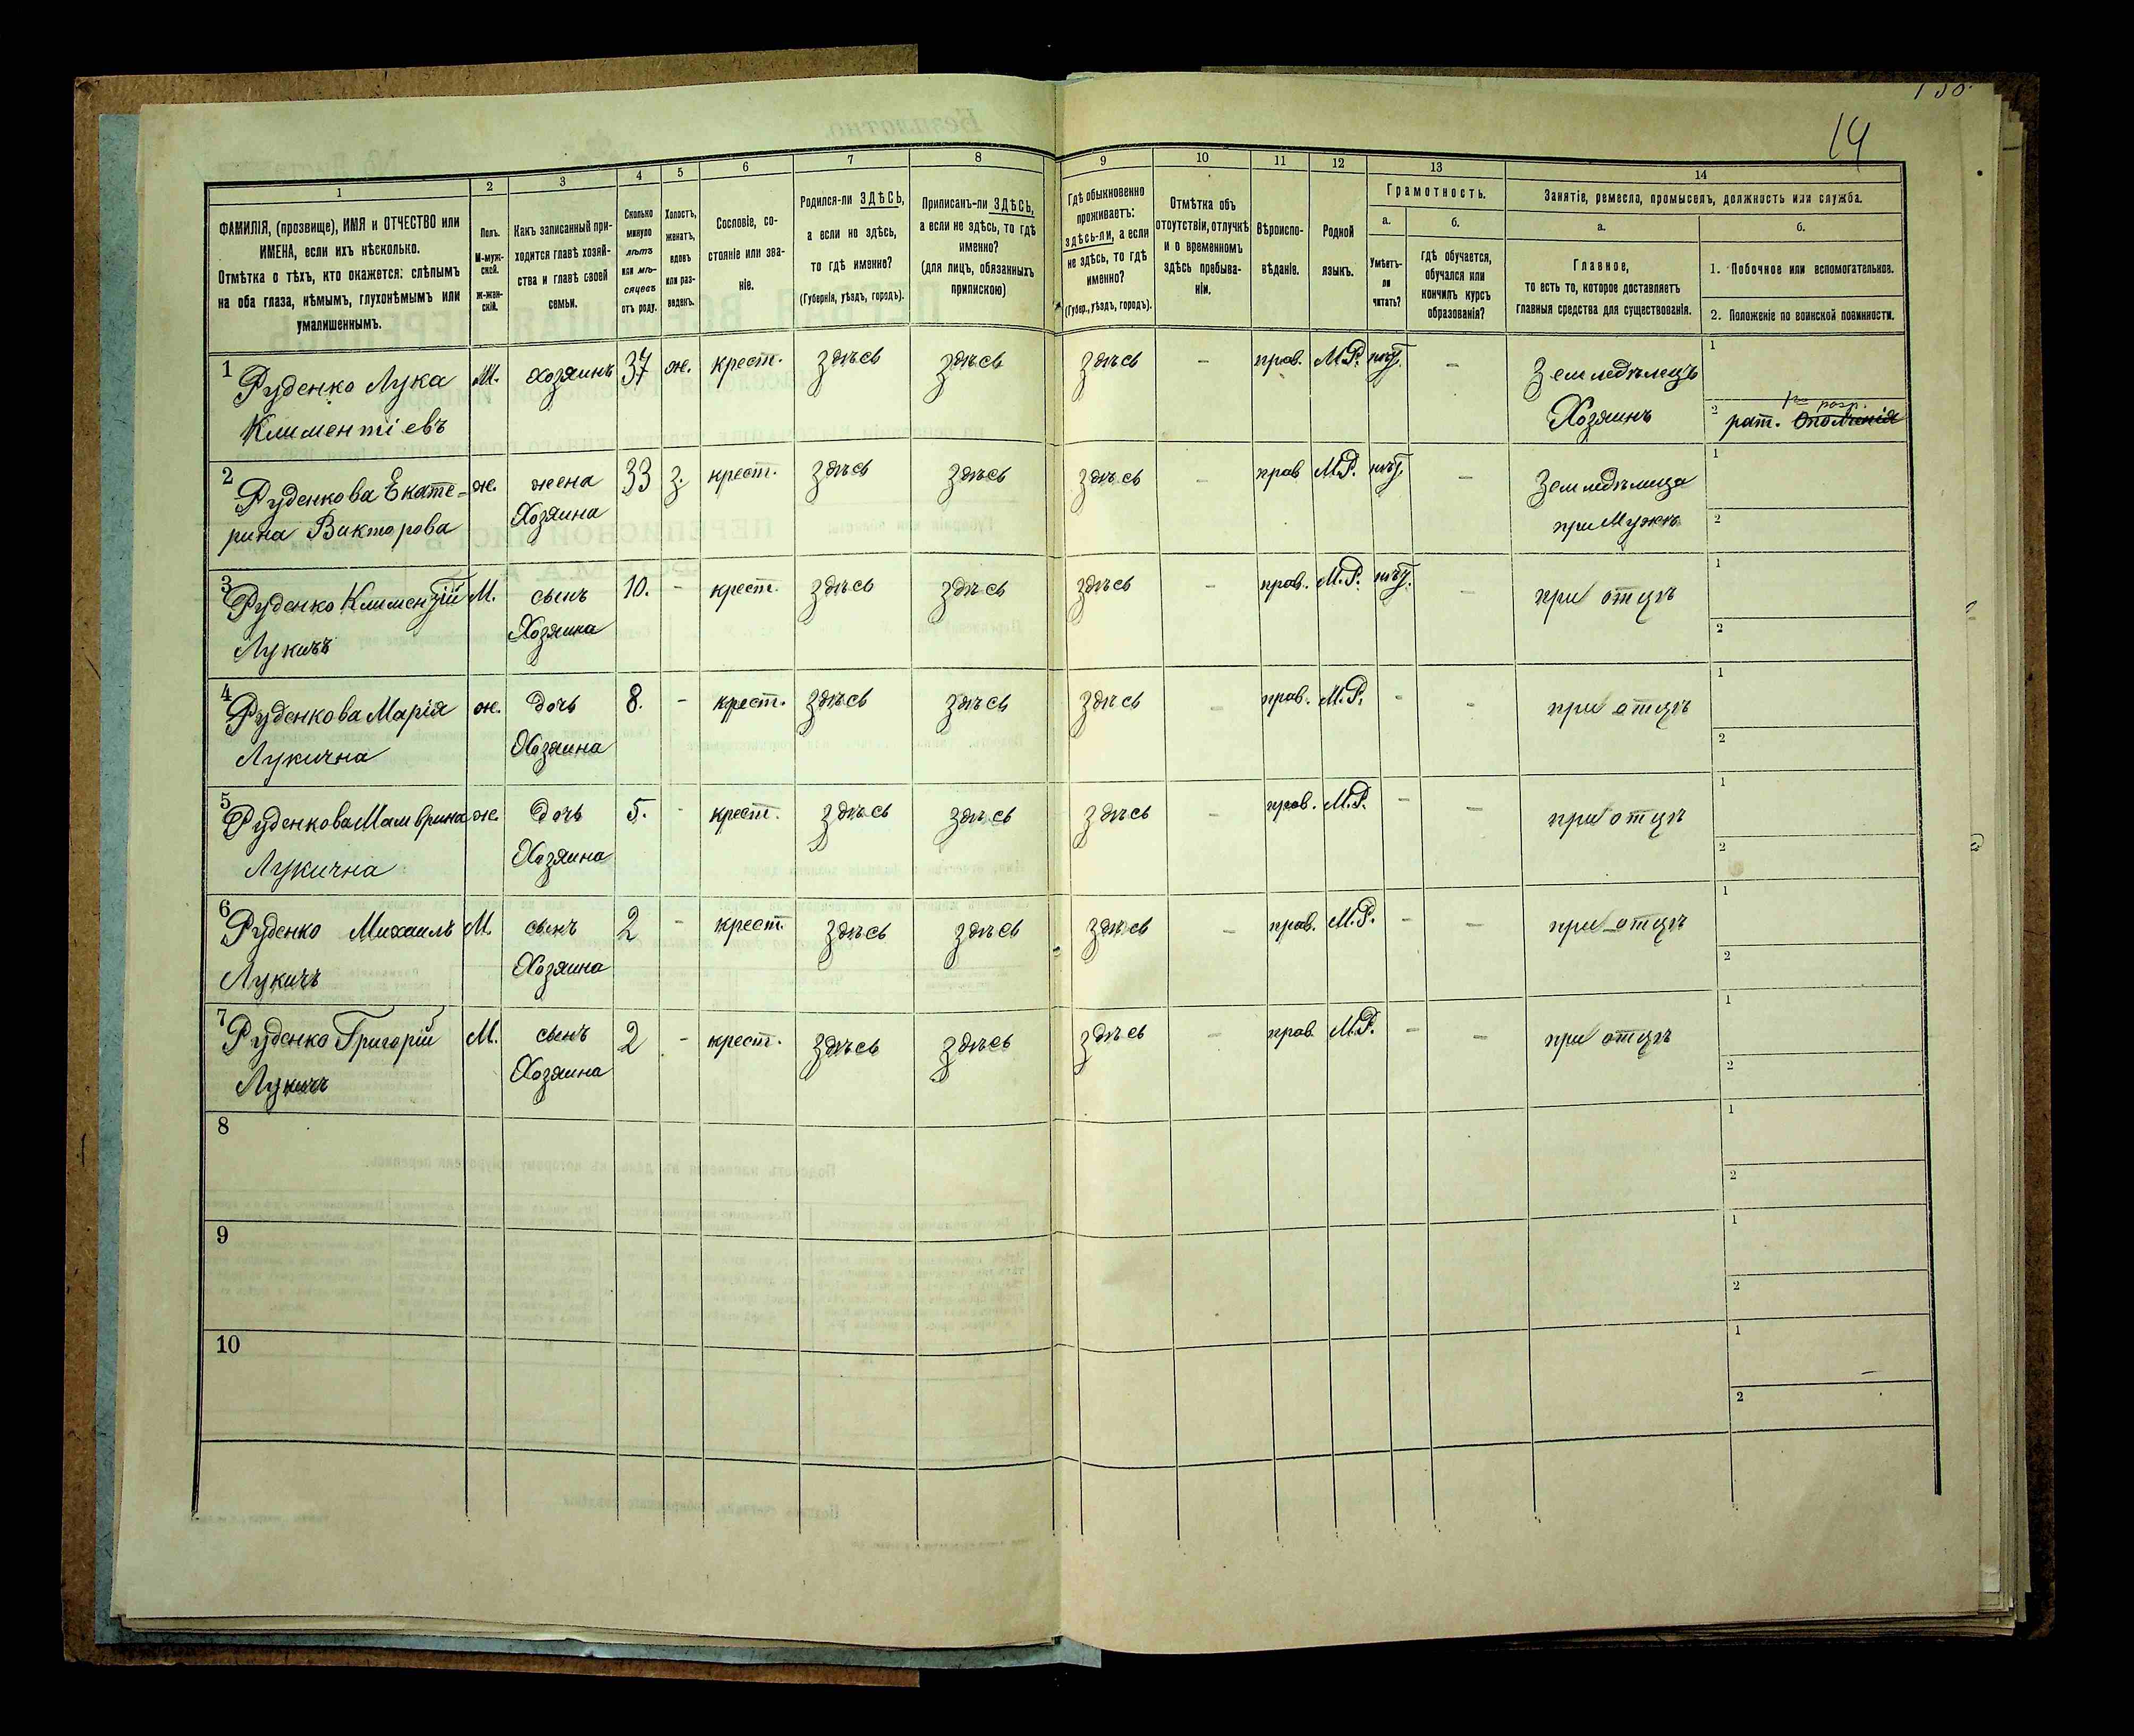 14
1 2 3 4 5 6 7 8 9 10 11 12 13 14
ФАМИЛІЯ, (прозвище), ИМЯ и ОТЧЕСТВО или
ИМЕНА, если ихъ нѣсколько.
Отмѣтка о тѣхъ, кто окажется: слѣпымъ
на оба глаза, нѣмымъ, глухонѣмымъ или
умалишеннымъ.
Полъ.
М-муж-
ской.
Ж-жен-
скій.
Какъ записанный при-
ходится главѣ хозяй-
ства и главѣ своей
семьи.
Сколько
минуло
лѣтъ
или мѣ-
сяцевъ
отъ роду.
Холостъ,
женатъ,
вдовъ
или раз-
веденъ.
Сословіе, со-
стояніе или зва-
ніе.
Родился-ли ЗДѢСЬ,
а если не здѣсь,
то гдѣ именно?
(Губернія, уѣздъ, городъ).
Приписанъ-ли ЗДѢСЬ,
а если не здѣсь, то гдѣ
именно?
(для лицъ, обязанныхъ
припискою)
Гдѣ обыкновенно
проживаетъ:
здѣсь-ли, а если
не здѣсь, то гдѣ
именно?
(Губер., уѣздъ, городъ).
Отмѣтка объ
отсутствіи, отлучкѣ
и о временномъ
здѣсь пребыва-
ніи.
Вѣроиспо-
вѣданіе.
Родной
языкъ.
Грамотность.
а.
Умѣетъ-
ли
читать?
б.
гдѣ обучается,
обучался или
кончилъ курсъ
образованія?
Занятіе, ремесло, промыселъ, должность или служба.
а.
Главное,
то есть то, которое доставляетъ
главныя средства для существованія.
б.
1. Побочное или вспомогательное.
2. Положеніе по воинской повинности.
1 Руденко Лука М. хозяинъ 37 ж. крест. здѣсь здѣсь здѣсь - прав. М.Р. нѣт. - Земледѣлецъ 1
Климентіевъ Хозяинъ 2 рат. Ополченія 1го разр.
2 Руденкова Екате- ж. жена 33 з. крест. здѣсь здѣсь здѣсь - прав М.Р. нѣт. - Земледѣлица 1
рина Викторова Хозяина при Мужѣ 2
3 Руденко Климентій М. сынъ 10. - крест. здѣсь здѣсь здѣсь - прав. М.Р. нѣт. - при отцѣ 1
Лукичъ Хозяина 2
4 Руденкова Марія ж. дочь 8. - крест. здѣсь здѣсь здѣсь - прав. М.Р. - - при отцѣ 1
Лукична Хозяина 2
5 Руденкова Маврина ж. дочь 5. - крест. здѣсь здѣсь здѣсь - прав. М.Р. - - при отцѣ 1
Лукична Хозяина 2
6 Руденко Михаилъ М. сынъ 2 - крест. здѣсь здѣсь здѣсь - прав. М.Р. - - при отцѣ 1
Лукичъ Хозяина 2
7 Руденко Григорій М. сынъ 2 - крест. здѣсь здѣсь здѣсь - прав. М.Р. - - при отцѣ 1
Лукичъ Хозяина 2
8 1
2
9 1
2
10 1
2